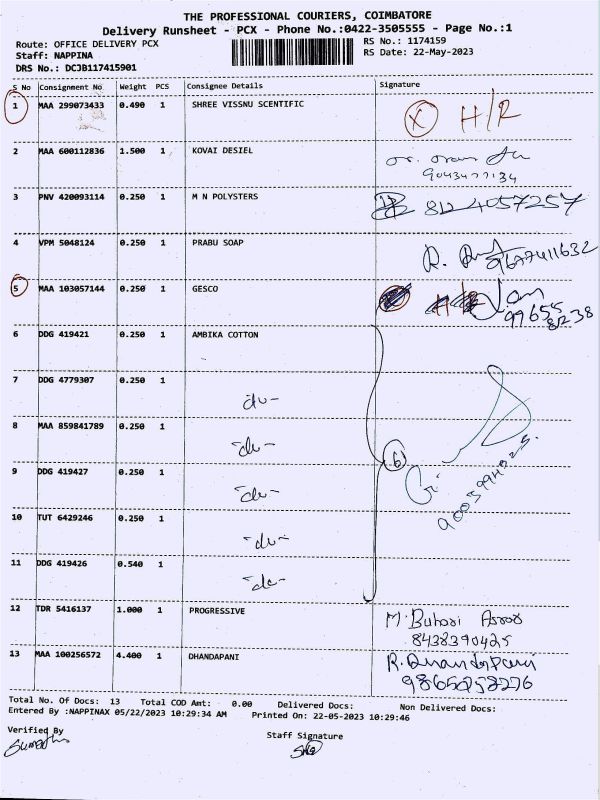 THE PROFESSIONAL COURIERS, COIMBATORE
Delivery Runsheet - PCX - Phone No.:0422-3505555 - Page No.:1
Route: OFFICE DELIVERY PCX
RS No.: 1174159
Staff: NAPPINA
RS Date: 22-May-2023
DRS No.: DCJB117415901
S No Consignment No Weight PCS Consignee Details Signature
1 MAA 299073433 0.490 1 SHREE VISSNU SCENTIFIC X H/R
2 MAA 600112836 1.500 1 KOVAI DESIEL
9043477134
3 PNV 420093114 0.250 1 M N POLYSTERS 8124057257
4 VPM 5048124 0.250 1 PRABU SOAP R.
9677411632
5 MAA 103057144 0.250 1 GESCO
99655
8238
6 DDG 419421 0.250 1 AMBIKA COTTON
7 DDG 4779307 0.250 1 -do-
8 MAA 859841789 0.250 1 -do-
6
9 DDG 419427 0.250 1 -do-
10 TUT 6429246 0.250 1 -do-
11 DDG 419426 0.540 1 -do-
12 TDR 5416137 1.000 1 PROGRESSIVE M. Buhari
8438390425
13 MAA 100256572 4.400 1 DHANDAPANI R.
9865258276
Total No. Of Docs: 13 Total COD Amt: 0.00 Delivered Docs: Non Delivered Docs:
Entered By :NAPPINAX 05/22/2023 10:29:34 AM Printed On: 22-05-2023 10:29:46
Verified By
Staff Signature